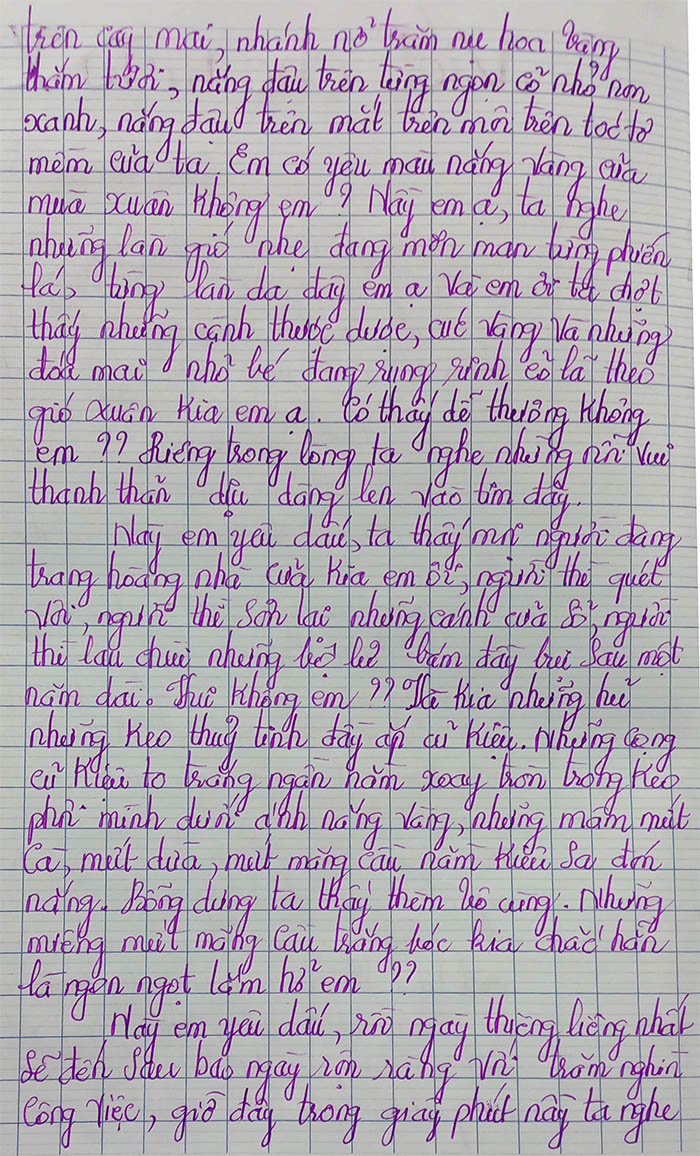 trên cây mai, nhánh nở trăm nụ hoa vàng
thắm tươi, nắng đậu trên từng ngọn cỏ nhỏ non
xanh, nắng đậu trên mắt trên môi trên tóc tơ
mềm của ta. Em có yêu màu nắng vàng của
mùa xuân không em ? Này em ạ, ta nghe
những làn gió nhẹ đang mơn man từng phiến
lá, từng làn da đây em ạ và em ơi ta chợt
thấy những cánh thược dược, cúc vàng và những
đoá mai nhỏ bé đang rung rinh cỏ lả theo
gió xuân kia em ạ. Có thấy dễ thương không
em ?? Riêng trong lòng ta nghe những nỗi vui
thanh thản dịu dàng len vào tim đây.
Này em yêu dấu, ta thấy mọi người đang
trang hoàng nhà cửa kia em ơi, người thì quét
vôi, người thì sơn lại những cánh cửa sổ, người
thì lau chùi những bộ lư bám đầy bụi sau một
năm dài. Thực không em ?? Thì kia những hũ
những keo thuỷ tinh đầy ắp củ kiệu. Những cọng
củ kiệu to trắng ngần nằm xoay tròn trong keo
phơi mình dưới ánh nắng vàng, những mâm mứt
cà, mứt dừa, mứt mãng cầu nằm kiêu sa đón
nắng. Bỗng dưng ta thấy thèm vô cùng. Những
miếng mứt mãng cầu trắng bóc kia chắc hẳn
là ngon ngọt lắm hở em ??
Này em yêu dấu, rồi ngày thiêng liêng nhất
sẽ đến sau bao ngày rộn ràng với trăm nghìn
công việc, giờ đây trong giây phút này ta nghe